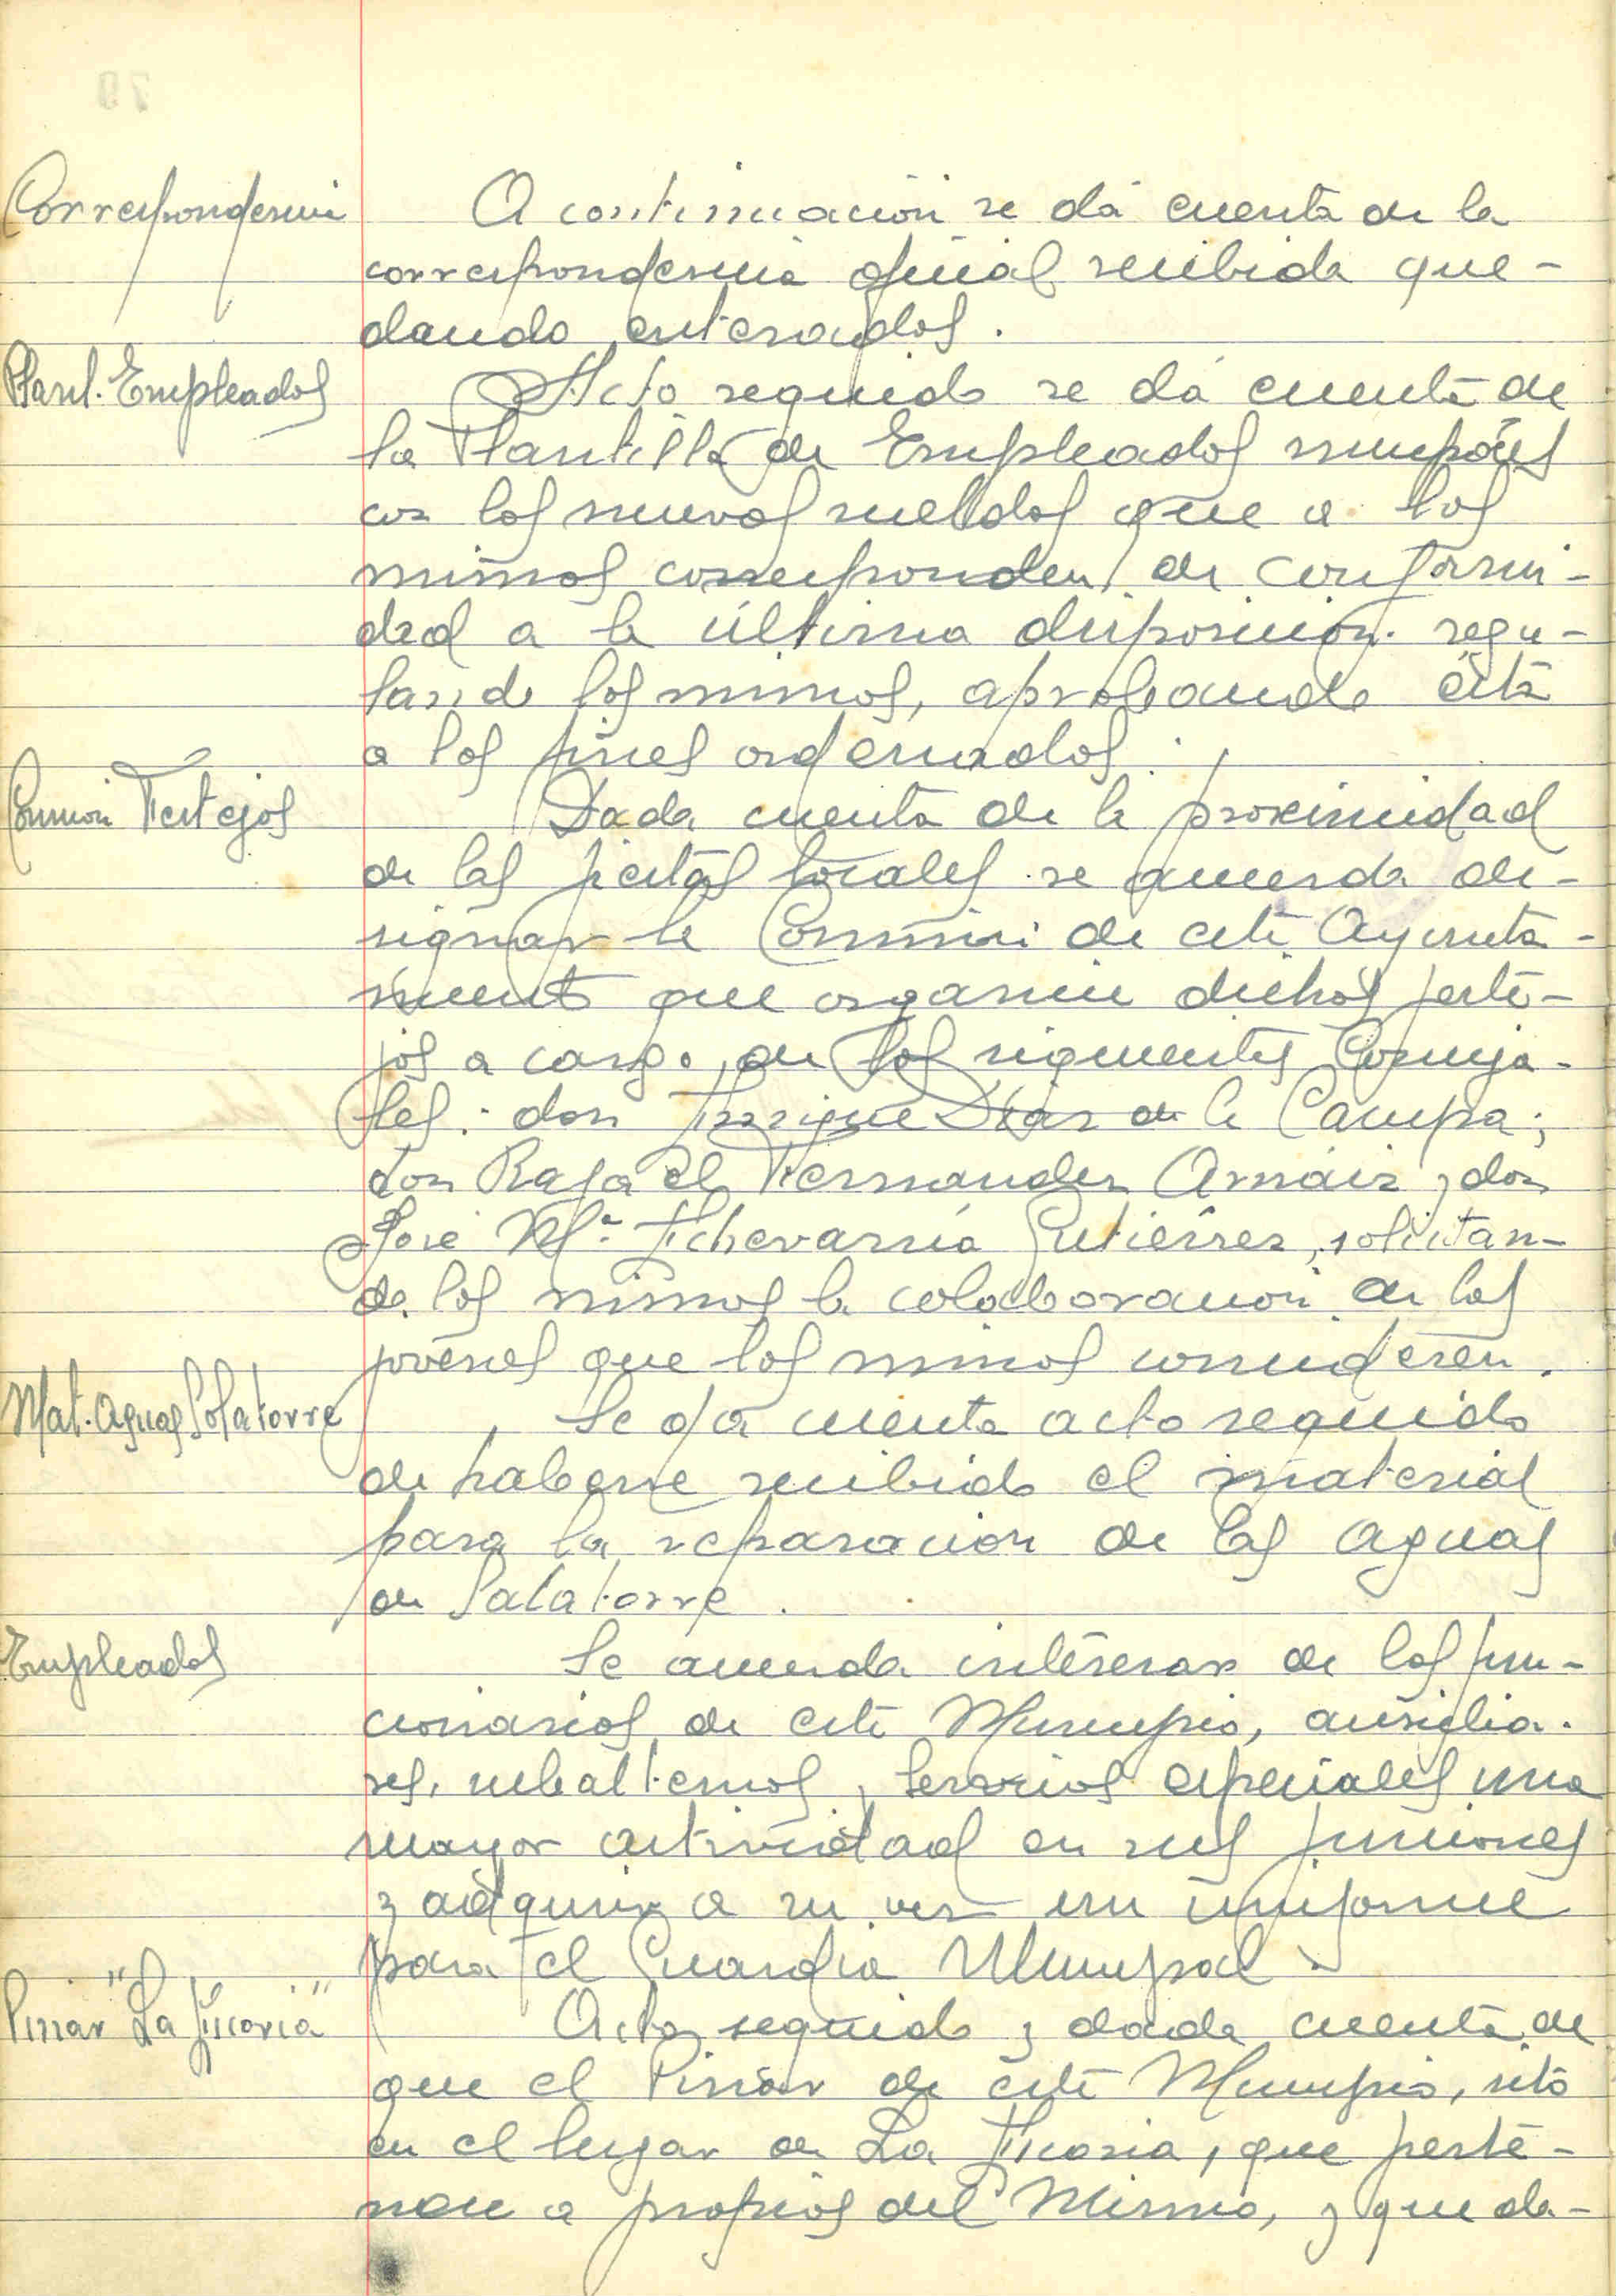 Correspondencia
A continuación se dá cuenta de la
correspondencia oficial recibida que-
dando enterados.
Plant. Empleados
Acto seguido se dá cuenta de
la Plantilla de Empleados
con los nuevos sueldos que a los
mismos corresponden de conformi-
dad a la última disposición regu-
lando los mismos, aprobando ésta
a los fines ordenados.
Comisión Festejos
Dada cuenta de la proximidad
de las fiestas locales se acuerda de-
signar la Comisión de este Ayunta-
miento que organice dichos feste-
jos a cargo de los siguientes Conceja-
les: don Enrique Díaz de la Campa;
don Rafael Fernandez Arnáiz y don
José Mª. Echevarría Gutiérrez, solicitan-
do los mismos la colaboración de los
jóvenes que los mismos consideren.
Mat. Aguas Solatorre
Se da cuenta acto seguido
de haberse recibido el material
para la reparación de las aguas
de Salatorre.
Empleados
Se acuerda interesar de los fun-
cionarios de este Municipio, auxilia-
res, subalternos y servicios especiales una
mayor actividad en sus funciones
y adquirir a su vez un uniforme
para el Guardia Municipal.
Pinar "La"
Acto seguido y dada cuenta de
que el Pinar de este Municipio, sito
en el lugar de La, que perte-
nece a propios del Mismo, y que da-